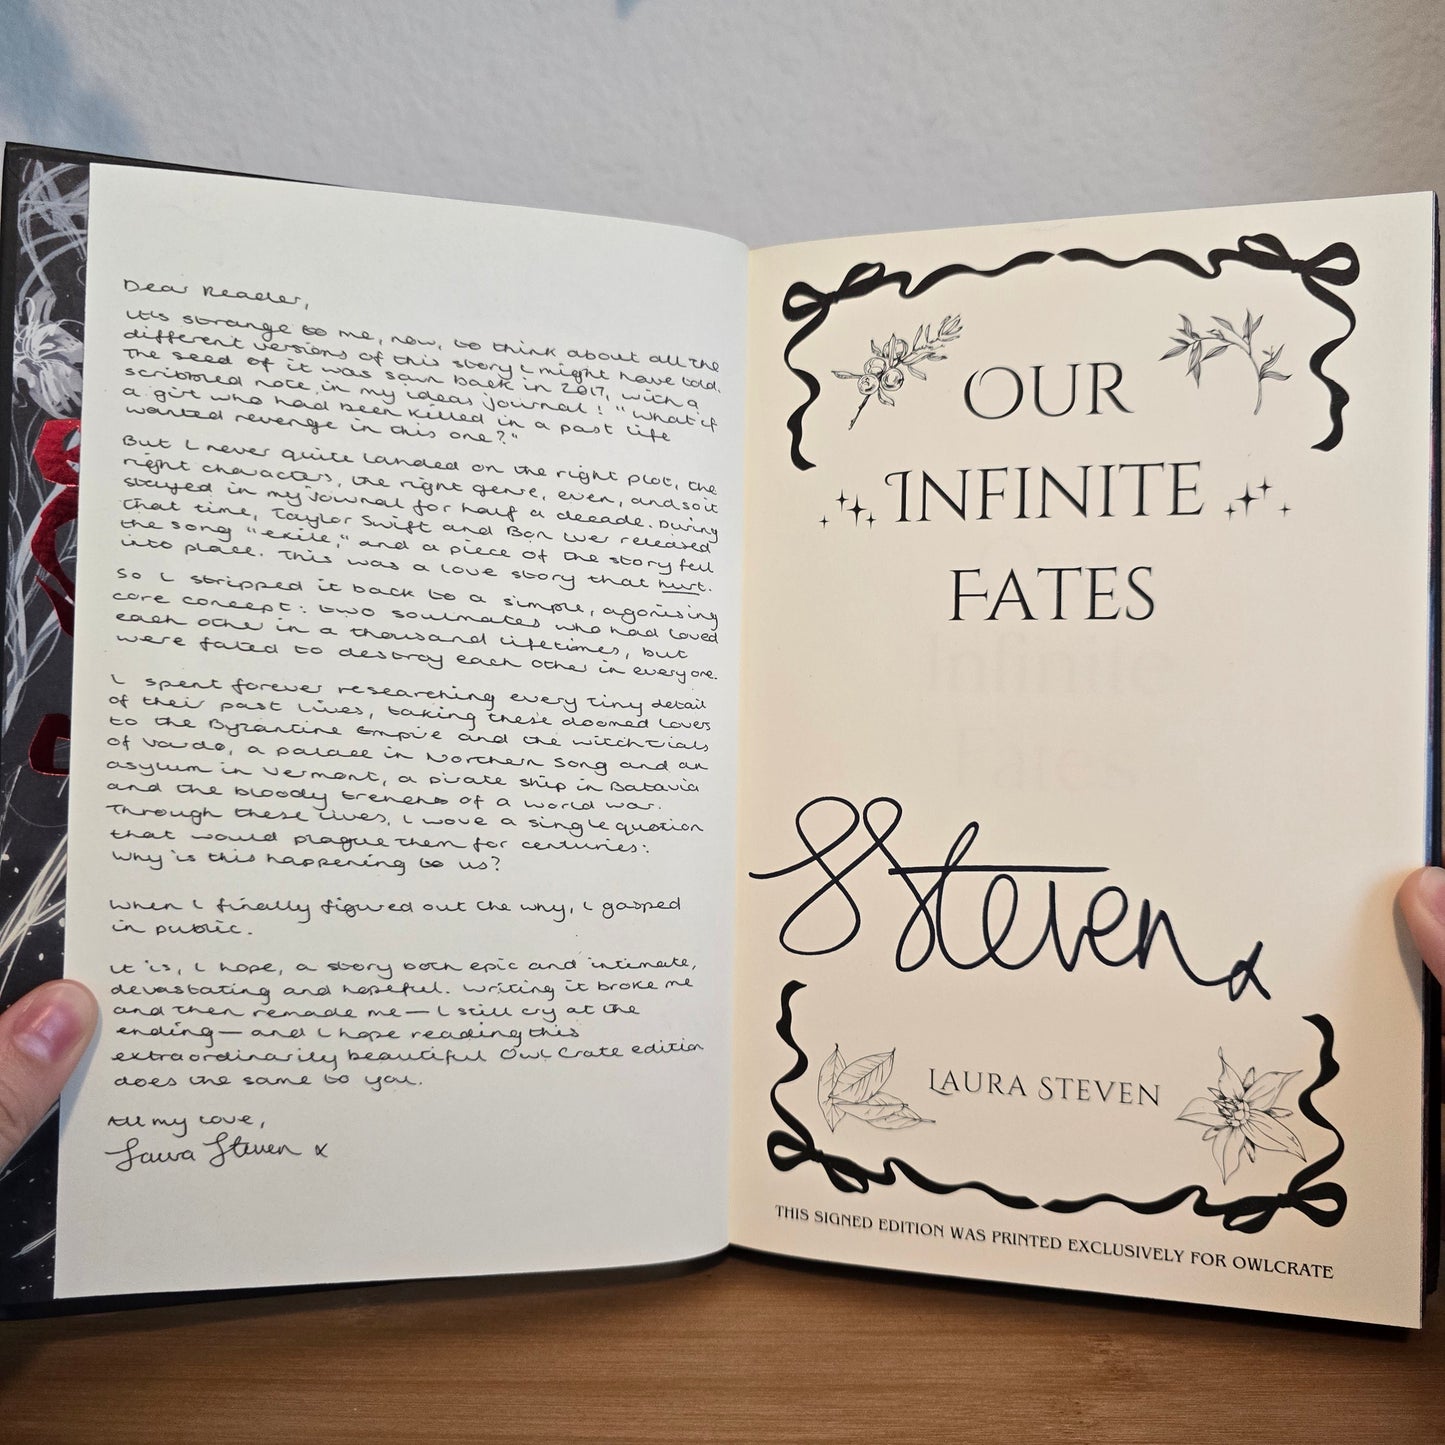 Dear Reader,
It's strange to me, now, to think about all the
different versions of this story I might have told.
The seed of it was sown back in 2017, with a
scribbled note in my ideas journal: "what if
a girl who had been killed in a past life
wanted revenge in this one?"
But I never quite landed on the right plot, the
right characters, the right genre, even, and so it
stayed in my journal for half a decade. During
that time, Taylor Swift and Bon Iver released
the song "exile," and a piece of the story fell
into place. This was a love story that hurt.
So I stripped it back to a simple, agonising
core concept: two soulmates who had loved
each other in a thousand lifetimes, but
were fated to destroy each other in every one.
I spent forever researching every tiny detail
of their past lives, taking these doomed lovers
to the Byzantine Empire and the witch trials
of Vardø, a palace in Northern Song and an
asylum in Vermont, a pirate ship in Batavia
and the bloody trenches of a world war.
Through these lives, I wove a single question
that would plague them for centuries:
Why is this happening to us?
When I finally figured out the why, I gasped
in public.
It is, I hope, a story both epic and intimate,
devastating and hopeful. Writing it broke me
and then remade me—I still cry at the
ending—and I hope reading this
extraordinarily beautiful OwlCrate edition
does the same to you.
All my love,
Laura Steven x
OUR
INFINITE
FATES
LSteven x
LAURA STEVEN
THIS SIGNED EDITION WAS PRINTED EXCLUSIVELY FOR OWLCRATE